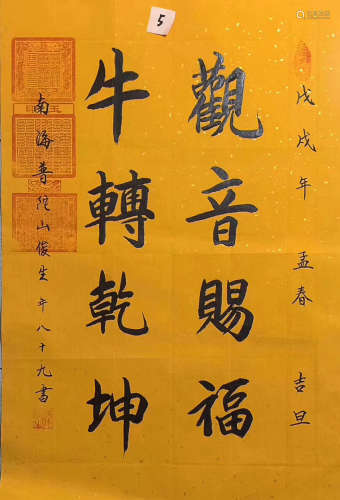 戊戌年孟春 吉旦
觀音賜福
牛轉乾坤
南海普陀山俊生年八十九書
5